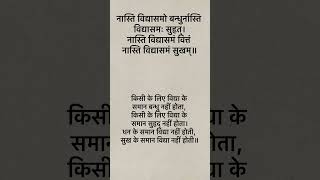 नास्ति विद्यासमो बन्धुर्नास्ति
विद्यासमः सुहृत्।
नास्ति विद्यासमं वित्तं
नास्ति विद्यासमं सुखम्॥
किसी के लिए विद्या के
समान बन्धु नहीं होता,
किसी के लिए विद्या के
समान सुहृद नहीं होता।
धन के समान विद्या नहीं होती,
सुख के समान विद्या नहीं होती॥